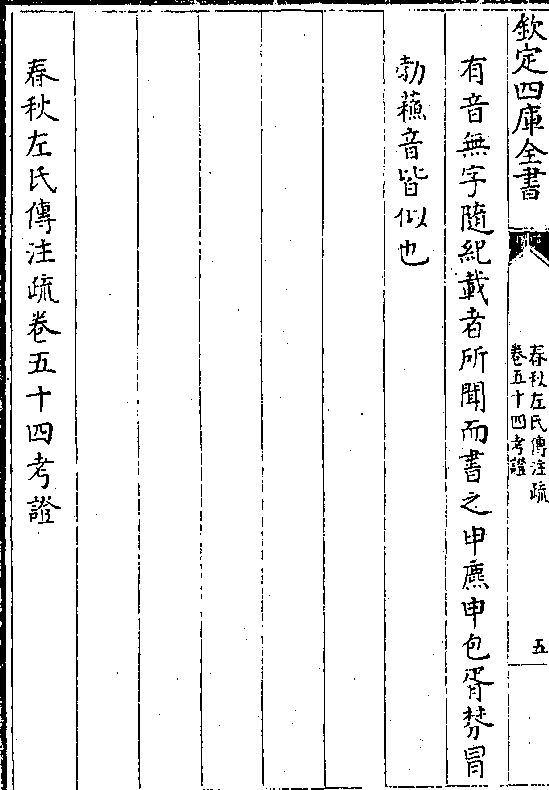 欽定四庫全書
春秋左氏傳注疏
卷五十四考證
五
有音無字隨紀載者所聞而書之申麃申包胥棼冒
勃蘓音皆似也
春秋左氏傳注疏卷五十四考證